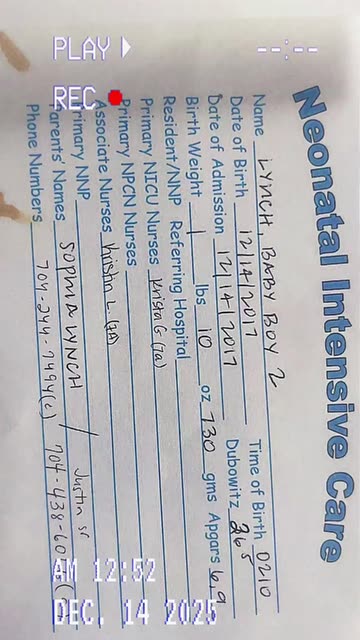 PLAY
--:--
REC
Neonatal Intensive Care
Name LYNCH, BABY BOY 2 Time of Birth 0210
Date of Birth 12/14/2017 Dubowitz 26 5
Date of Admission 12/14/2017
Birth Weight 1 lbs 10 oz 730 gms Apgars 6,9
Resident/NNP Referring Hospital
Primary NICU Nurses Krista G (7a)
Primary NPCN Nurses
Associate Nurses Krista L. (7A)
Primary NNP
Parents' Names SOPHIA LYNCH / Justin Sr
Phone Numbers 704-244-7494(c) 704-438-60
AM 12:52
DEC. 14 2025